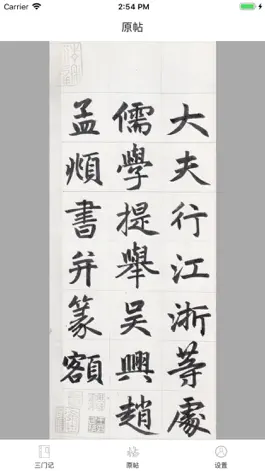 Carrier 2:54 PM
原帖
大夫行江浙等處
儒學提舉吳興趙
孟頫書并篆額
三门记 原帖 设置